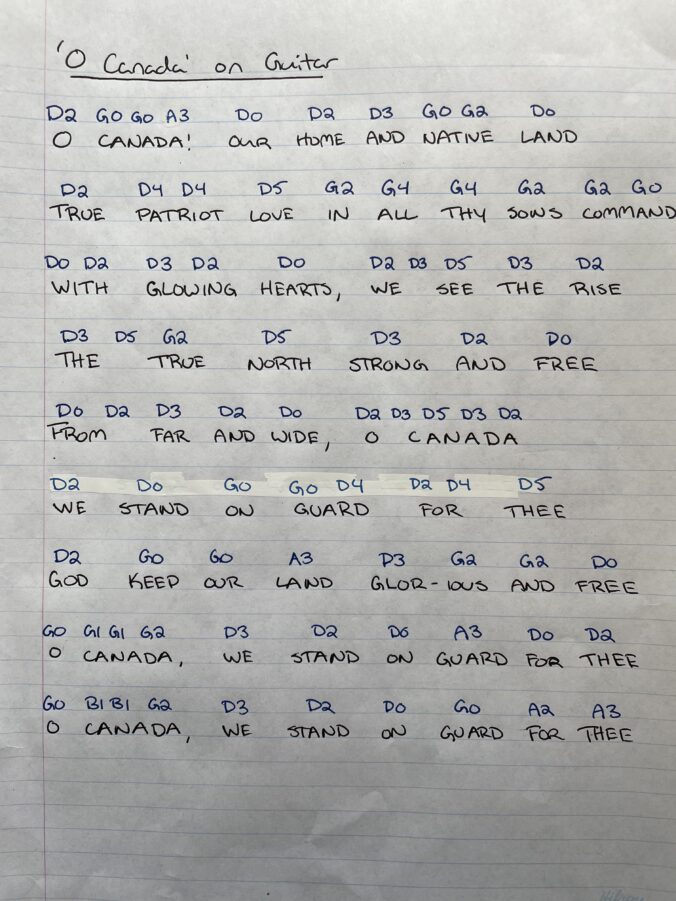 'O Canada' on Guitar
D2 G0 G0 A3 D0 D2 D3 G0 G2 D0
O CANADA! OUR HOME AND NATIVE LAND
D2 D4 D4 D5 G2 G4 G4 G2 G2 G0
TRUE PATRIOT LOVE IN ALL THY SONS COMMAND
D0 D2 D3 D2 D0 D2 D3 D5 D3 D2
WITH GLOWING HEARTS, WE SEE THE RISE
D3 D5 G2 D5 D3 D2 D0
THE TRUE NORTH STRONG AND FREE
D0 D2 D3 D2 D0 D2 D3 D5 D3 D2
FROM FAR AND WIDE, O CANADA
D2 D0 G0 G0 D4 D2 D4 D5
WE STAND ON GUARD FOR THEE
D2 G0 G0 A3 D3 G2 G2 D0
GOD KEEP OUR LAND GLOR-IOUS AND FREE
G0 G1 G1 G2 D3 D2 D0 A3 D0 D2
O CANADA, WE STAND ON GUARD FOR THEE
G0 B1 B1 G2 D3 D2 D0 G0 A2 A3
O CANADA, WE STAND ON GUARD FOR THEE